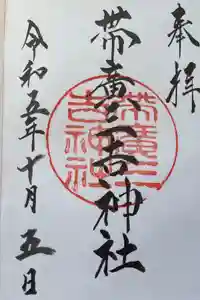 奉拝
帯廣三吉神社
帯廣三
吉神社
令和五年十月五日